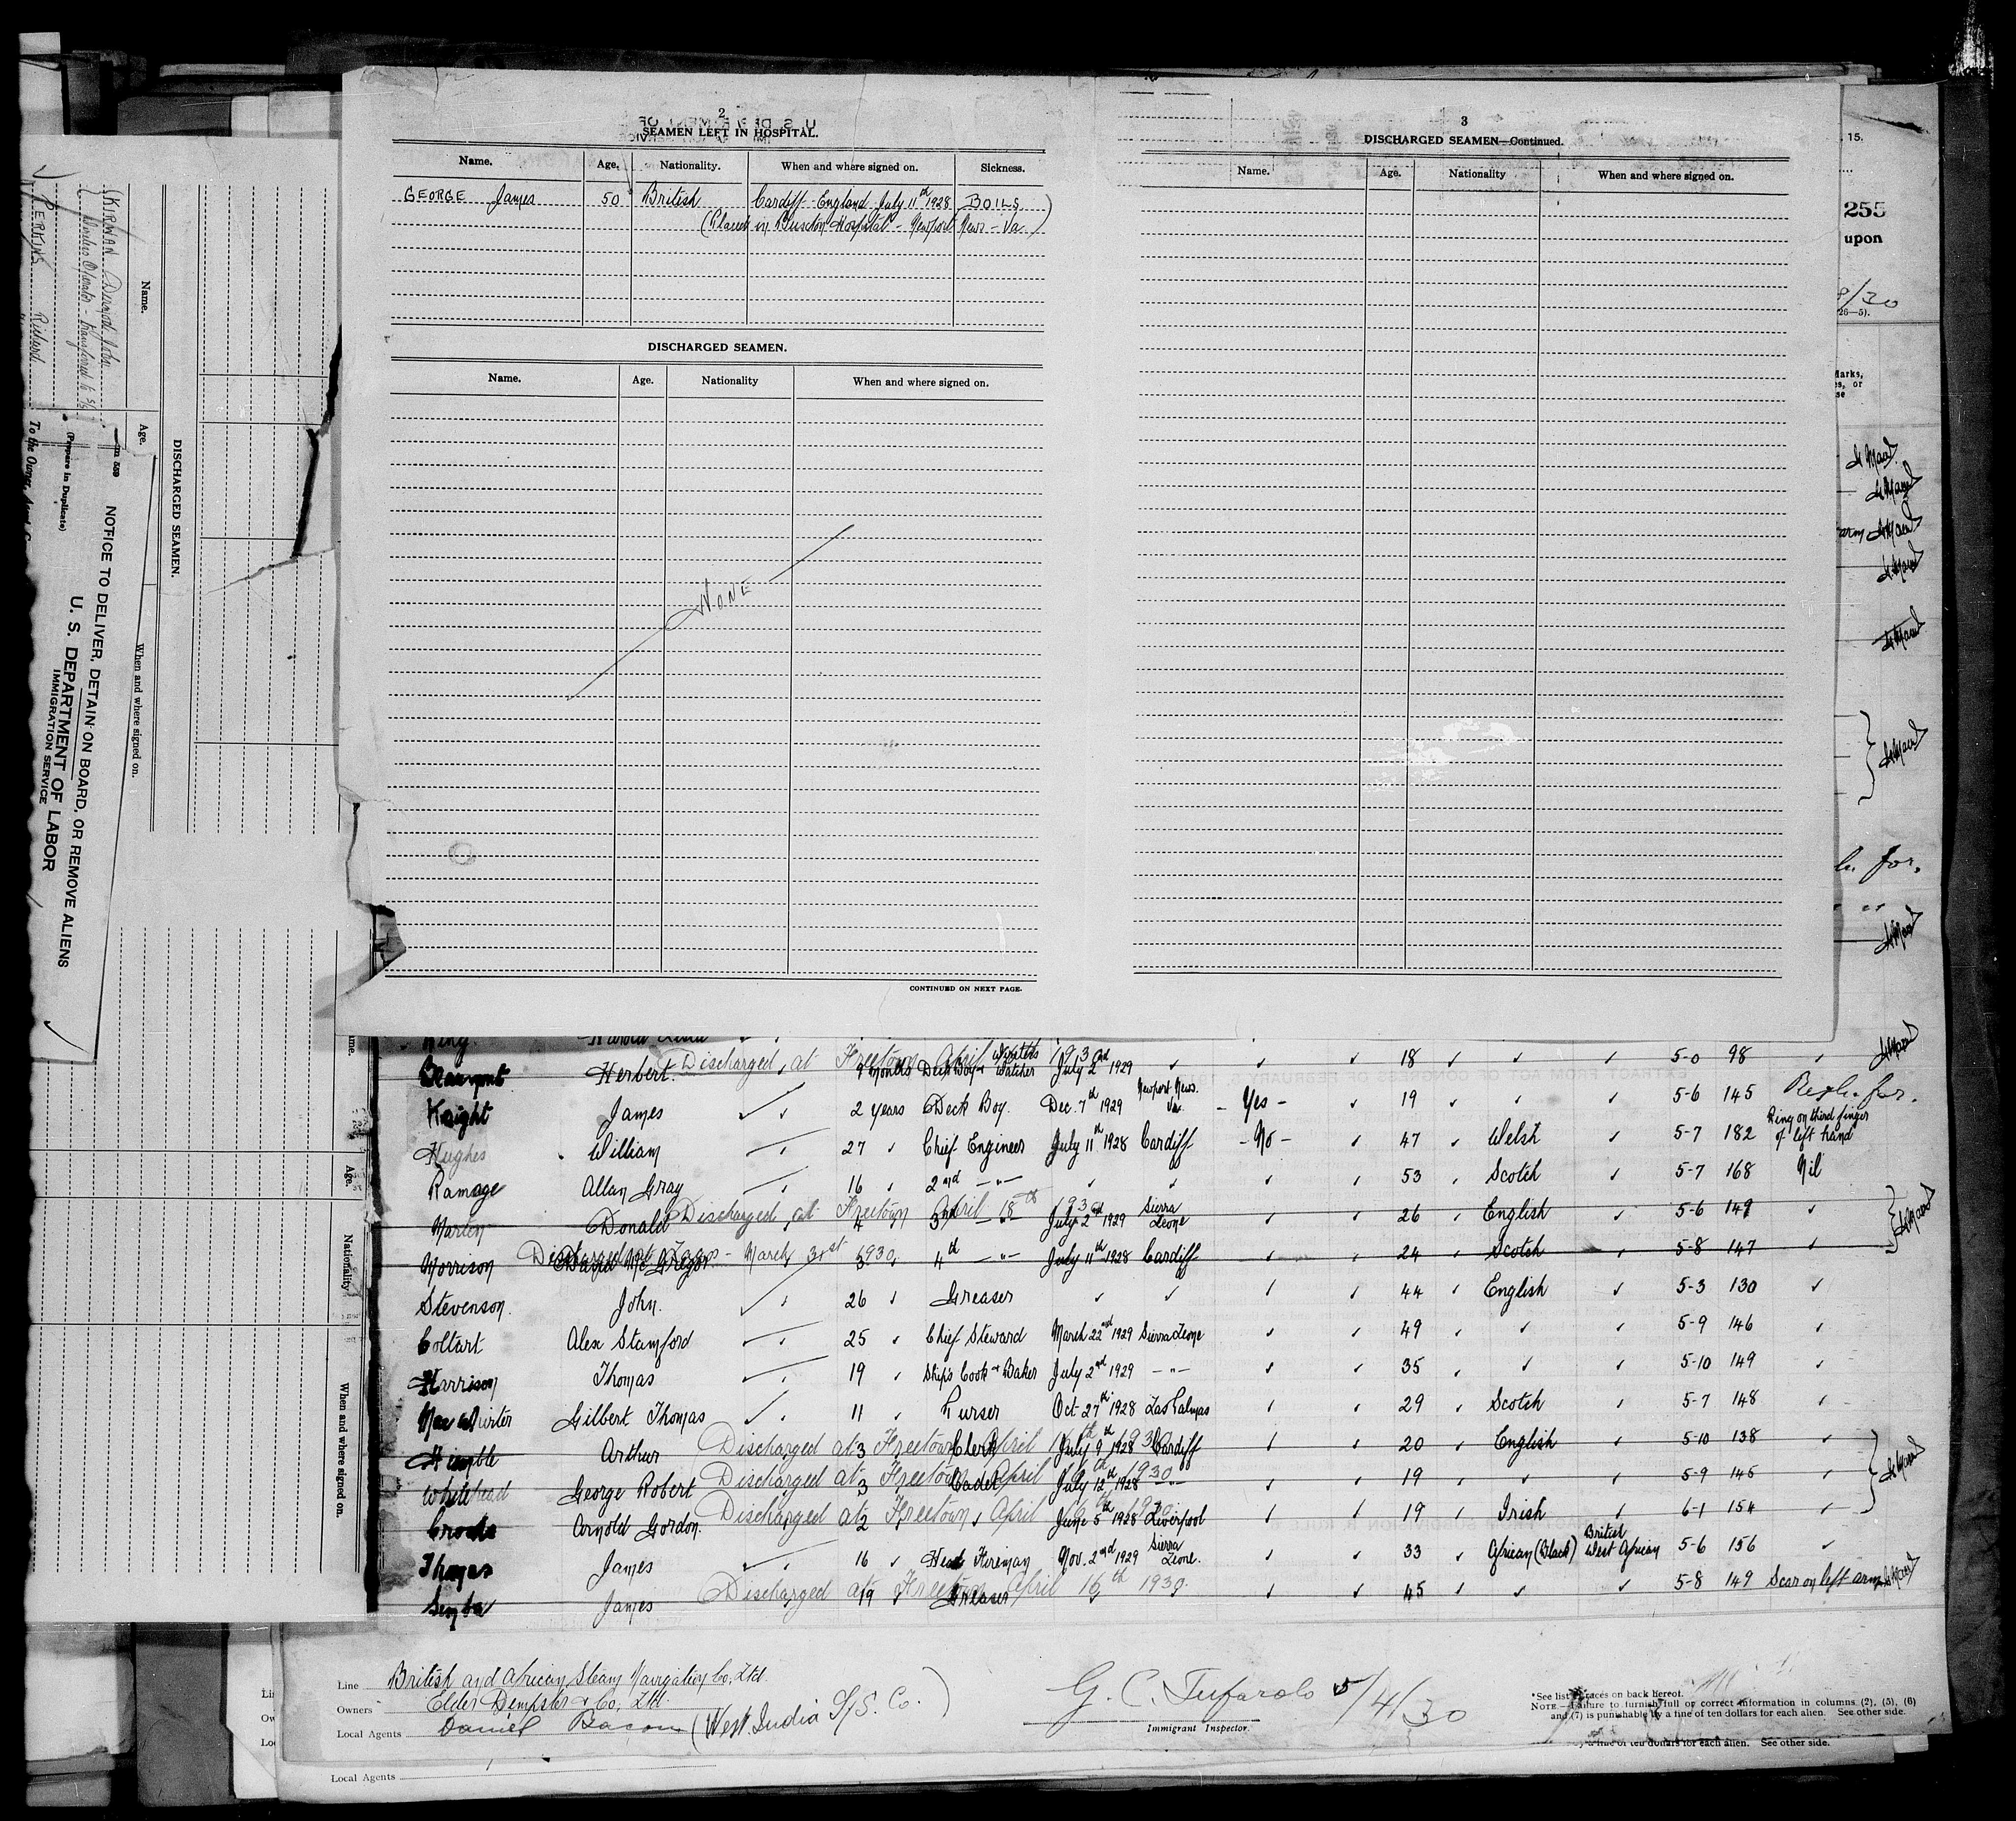 2
SEAMEN LEFT IN HOSPITAL.
Name. Age. Nationality. When and where signed on. Sickness.
GEORGE James 50 British Cardiff England July 11th 1928 BOILS
(Placed in Buxton Hospital - Newport News - Va)
DISCHARGED SEAMEN.
Name. Age. Nationality When and where signed on.
NONE
CONTINUED ON NEXT PAGE.
3
DISCHARGED SEAMEN—Continued.
Name. Age. Nationality When and where signed on.
15.
255
upon
/30
26—5).
Marks,
or
DISCHARGED SEAMEN.
Name. Age. When and where signed on.
KIRWAN Dermod John
Wireless Operator - transferred to S/S
PERKINS Richard
NOTICE TO DELIVER, DETAIN ON BOARD, OR REMOVE ALIENS
U. S. DEPARTMENT OF LABOR
IMMIGRATION SERVICE
(Prepare in Duplicate)
To the Owner,
Age. Nationality When and where signed on.
King Harold
Beaumont Herbert. Discharged at Freetown April 1930 9 months Deck Boy July 2nd 1929 18 5-0 98
Knight James 2 years Deck Boy. Dec. 7th 1929 Newport News. Va. - Yes - 19 5-6 145
Hughes William 27 Chief Engineer July 11th 1928 Cardiff - No - 47 Welsh 5-7 182 Ring on third finger of left hand
Ramage Allan Gray 16 2nd -"- 53 Scotch 5-7 168 Nil
Marten Donald Discharged at Freetown April 18th 1930 4 3rd -"- July 2nd 1929 Sierra Leone 26 English 5-6 149
Morrison David McGregor Discharged at Lagos - March 31st 1930. 5 4th -"- July 11th 1928 Cardiff 24 Scotch 5-8 147
Stevenson. John. 26 Greaser 44 English 5-3 130
Coltart Alex Stamford 25 Chief Steward March 22nd 1929 Sierra Leone 49 5-9 146
Harrison Thomas 19 Ship's Cook & Baker July 2nd 1929 -"- 35 5-10 149
MacWhirter Gilbert Thomas 11 Purser Oct 27th 1928 Las Palmas 29 Scotch 5-7 148
Himble Arthur Discharged at Freetown April 1930 3 Clerk July 9th 1928 Cardiff 20 English 5-10 138
Whitehead George Robert Discharged at Freetown April 1930 3 Cadet July 12th 1928 -"- 19 5-9 145
Arnold Gordon. Discharged at Freetown, April 1930 2 June 5th 1928 Liverpool 19 Irish 6-1 154
Thomas James 16 Head Fireman Nov. 2nd 1929 Sierra Leone. 33 African (Black) British West African 5-6 156
James Discharged at Freetown April 16th 1930. 19 Greaser 45 5-8 149 Scar on left arm
Line British and African Steam Navigation Co, Ltd.
Owners Elder Dempster & Co, Ltd.
Local Agents Daniel Bacon (West India S/S. Co.)
G. C. Tufarolo 5/4/30
Immigrant Inspector.
*See list of races on back hereof.
NOTE.—Failure to furnish full or correct information in columns (2), (5), (6)
and (7) is punishable by a fine of ten dollars for each alien. See other side.
by a fine of ten dollars for each alien. See other side.
Local Agents